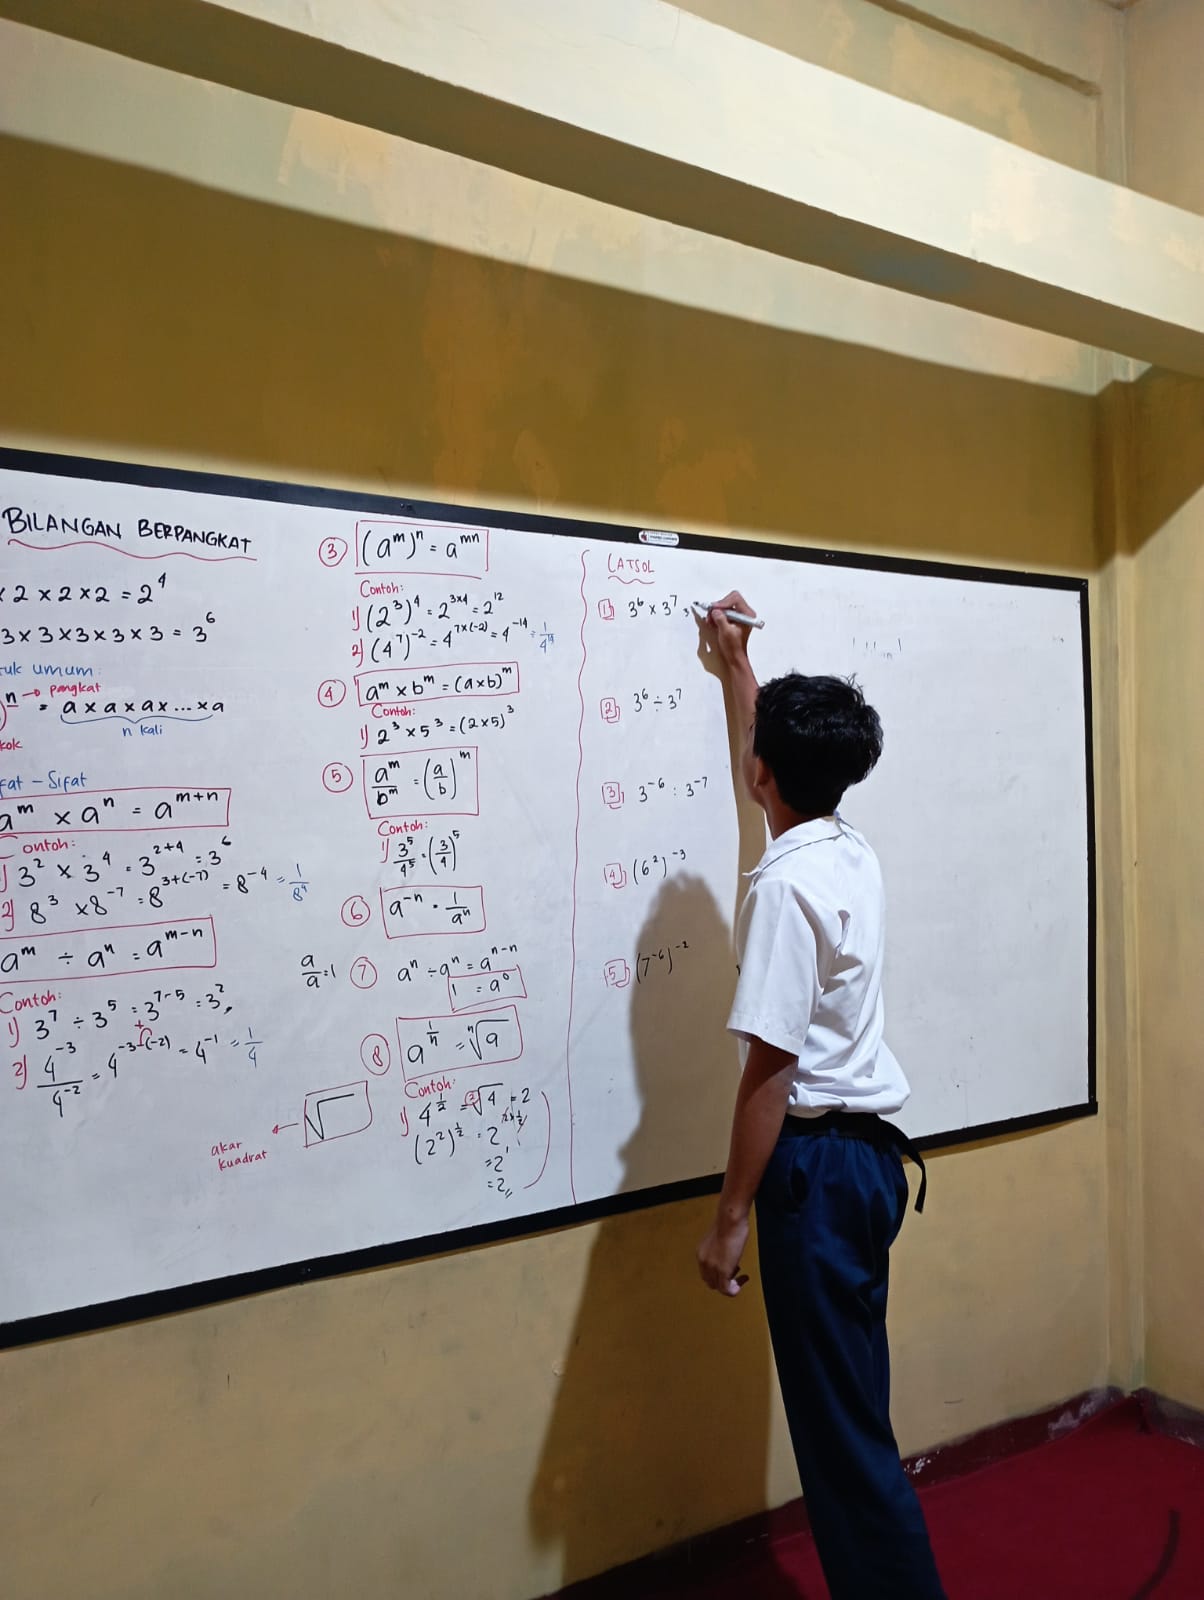 BILANGAN BERPANGKAT
× 2 × 2 × 2 = 2⁴
3 × 3 × 3 × 3 × 3 = 3⁶
tuk umum:
n → pangkat
= a × a × a × ... × a
n kali
kok
fat - Sifat
aᵐ × aⁿ = aᵐ⁺ⁿ
Contoh:
1) 3² × 3⁴ = 3²⁺⁴ = 3⁶
2) 8³ × 8⁻⁷ = 8³⁺⁽⁻⁷⁾ = 8⁻⁴ = 1/8⁴
aᵐ ÷ aⁿ = aᵐ⁻ⁿ
Contoh:
1) 3⁷ ÷ 3⁵ = 3⁷⁻⁵ = 3²
2) 4⁻³/4⁻² = 4⁻³⁻⁽⁻²⁾ = 4⁻¹ = 1/4
+
akar
kuadrat
← √
3 (aᵐ)ⁿ = aᵐⁿ
Contoh:
1) (2³)⁴ = 2³ˣ⁴ = 2¹²
2) (4⁷)⁻² = 4⁷ˣ⁽⁻²⁾ = 4⁻¹⁴ = 1/4¹⁴
4 aᵐ × bᵐ = (a×b)ᵐ
Contoh:
1) 2³ × 5³ = (2×5)³
5 aᵐ/bᵐ = (a/b)ᵐ
Contoh:
1) 3⁵/4⁵ = (3/4)⁵
6 a⁻ⁿ = 1/aⁿ
a/a = 1
7 aⁿ ÷ aⁿ = aⁿ⁻ⁿ
1 = a⁰
8 a^(1/n) = ⁿ√a
Contoh:
1) 4^(1/2) = ²√4 = 2
(2²)^(1/2) = 2^(2×1/2)
= 2¹
= 2
LATSOL
1 3⁶ × 3⁷ = 3
2 3⁶ ÷ 3⁷
3 3⁻⁶ : 3⁻⁷
4 (6²)⁻³
5 (7⁻⁶)⁻²